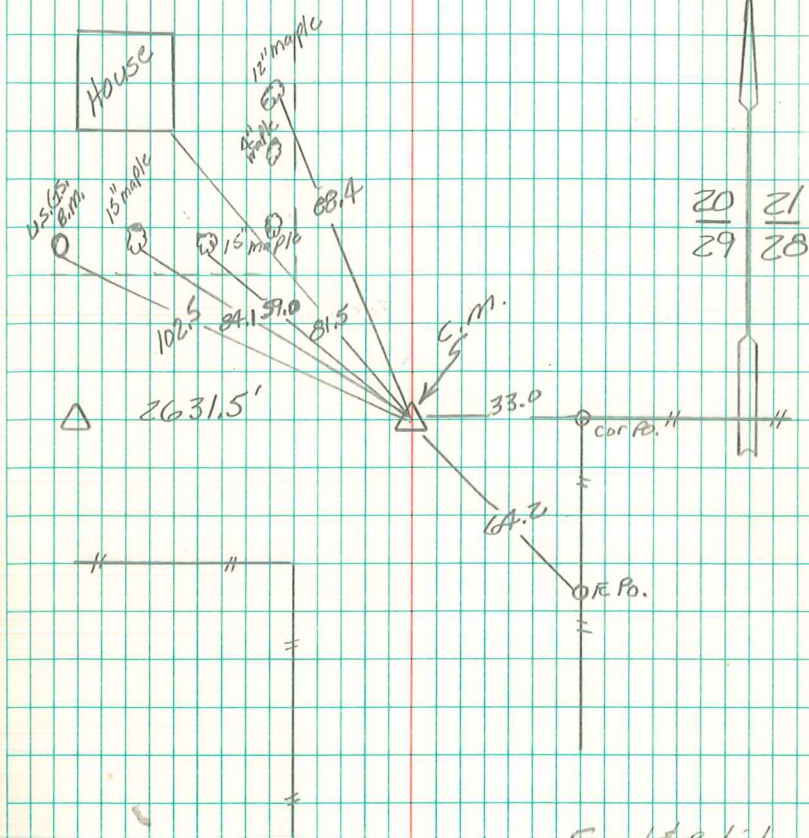 House
12" maple
4" maple
15" maple
U.S.G.S.
B.M.
15" maple
68.4
20 21
29 28
102.5
84.1
59.0
81.5
C.M.
2631.5'
33.0
cor Po.
64.2
Po.